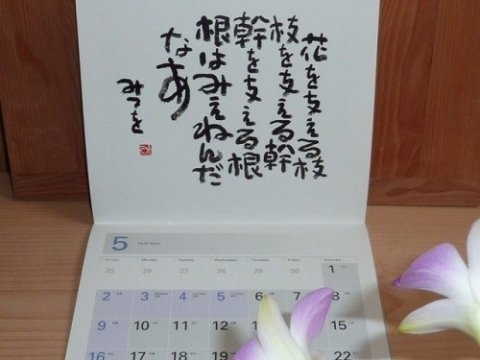 花を支える枝
枝を支える幹
幹を支える根
根はみえねんだ
なあ
みつを
5
Monday Tuesday Wednesday Thursday Friday Saturday
25 26 27 28 29 30 1
2 3 4 5 6 8
9 10 11 12 13 15
16 17 18 19 22